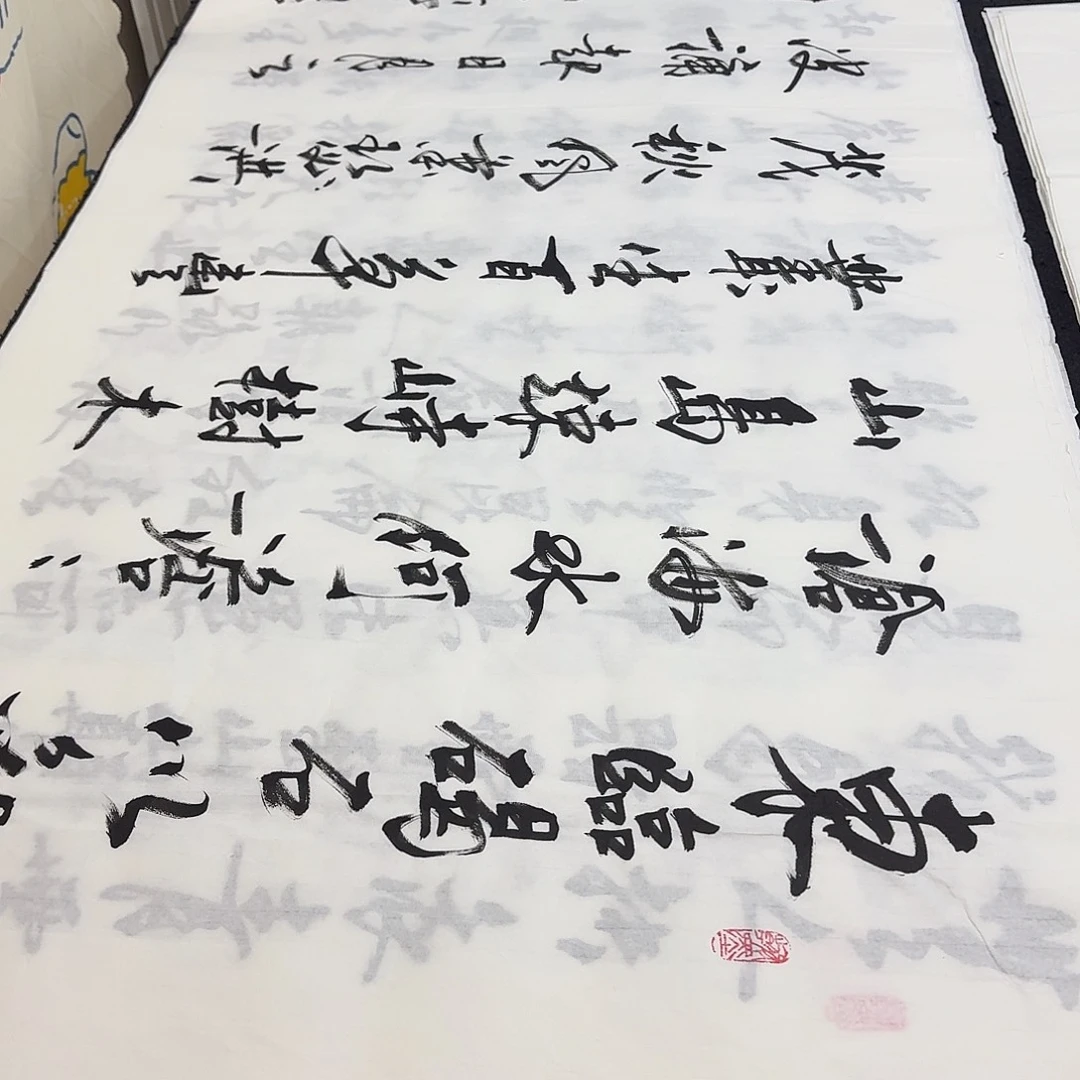 東臨碣石以
滄海水何澹〻
山島竦峙樹木
叢生百草豐
茂秋風蕭瑟洪
波湧起日月之